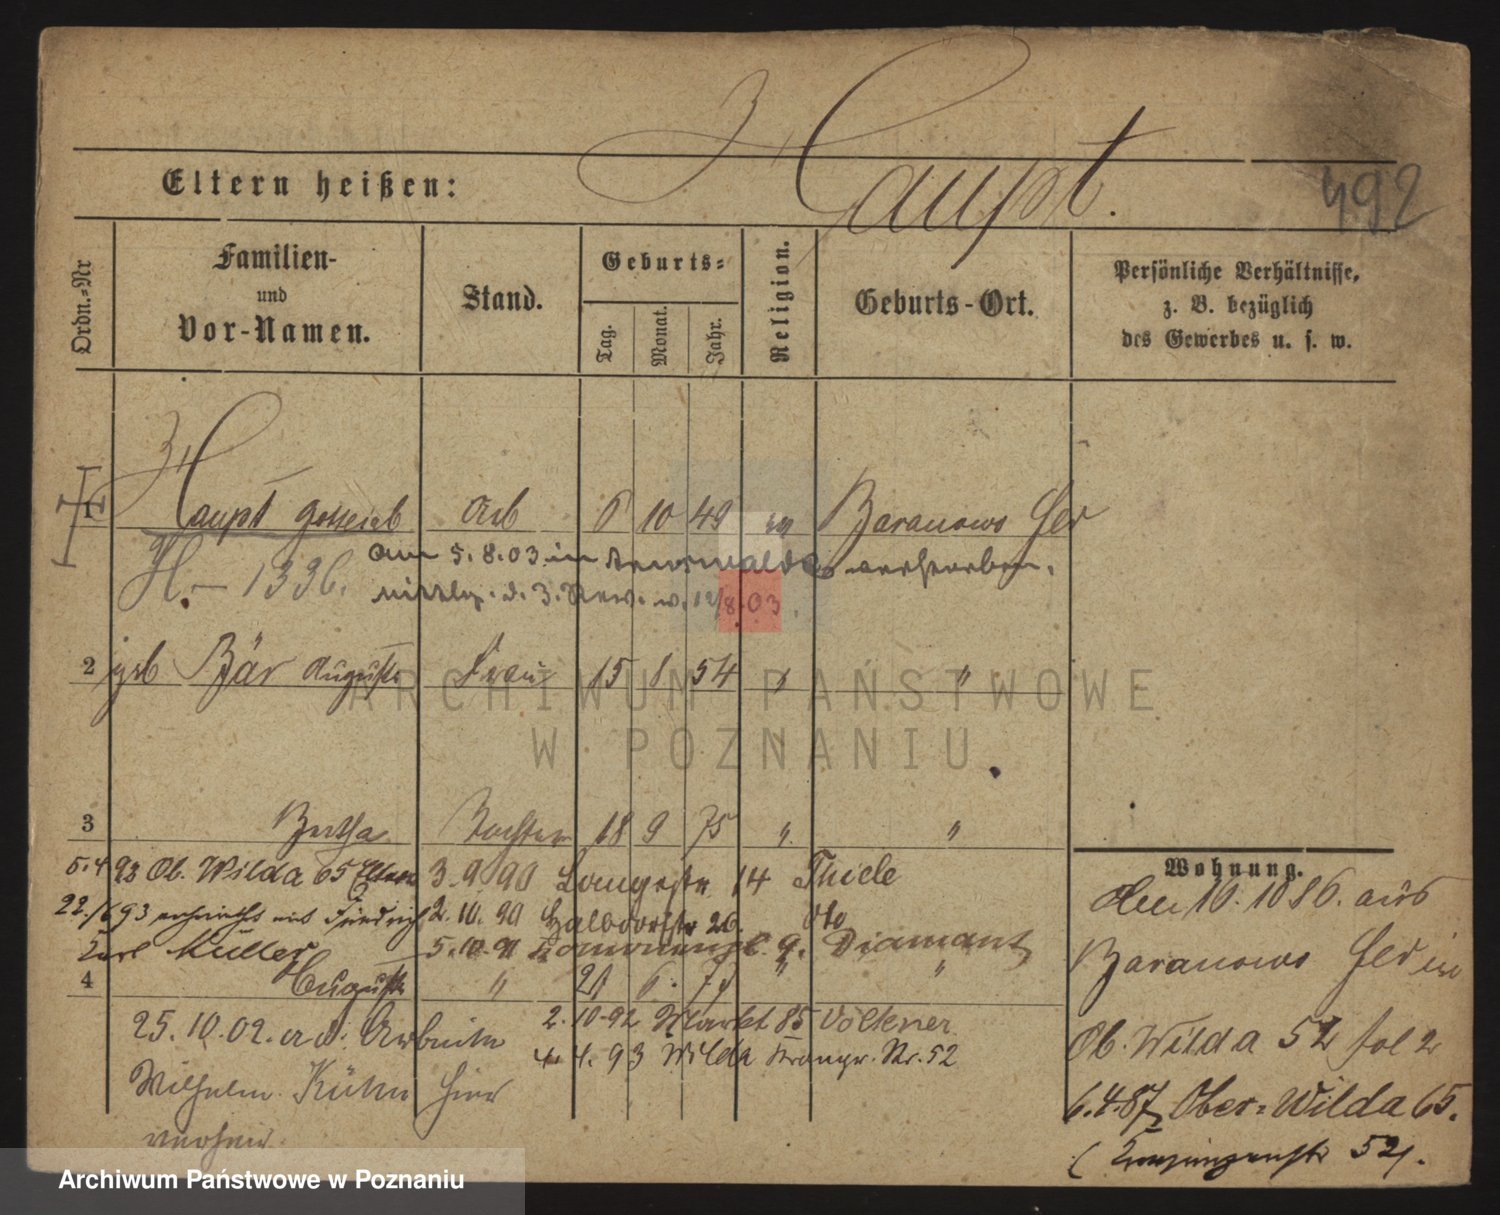 Haupt.
Eltern heißen:
492
Ordn.-Nr
Familien-
und
Vor-Namen.
Stand.
Geburts-
Tag.
Monat.
Jahr.
Religion.
Geburts-Ort.
Persönliche Verhältnisse,
z. B. bezüglich
des Gewerbes u. s. w.
1 Haupt Gottlieb Arb 6 10 49 Baranowo
H. – 1336. am 5. 8. 03. in verstorben.
d. 3. Rev. v. 12/8. 03.
2 geb Bär Auguste Frau 15 8 54 "
ARCHIWUM PAŃSTWOWE
W POZNANIU
3 Bertha Tochter 18 9 75 " "
5. 4 93 Ob. Wilda 65 3. 9. 90 Langestr 14 Thiele
22./6 93 verheirathet mit Friedrich 2. 10. 90 Halbdorfstr 26. Otto
Karl Müller 5. 10. 91 9. Diamant
4 Auguste " 21 6. " "
2. 10. 92 Markt 85 Völkner
25. 10. 02. a. d. Arbeiter
4. 4. 93 Wilda Kronpr. Str. 52
Wilhelm Kühn hier
verheir.
Wohnung.
den 10. 10 86. aus
Baranowo
Ob. Wilda 52
6. 4. 87 Ober-Wilda 65.
( Kronprinzenstr 52).
Archiwum Państwowe w Poznaniu